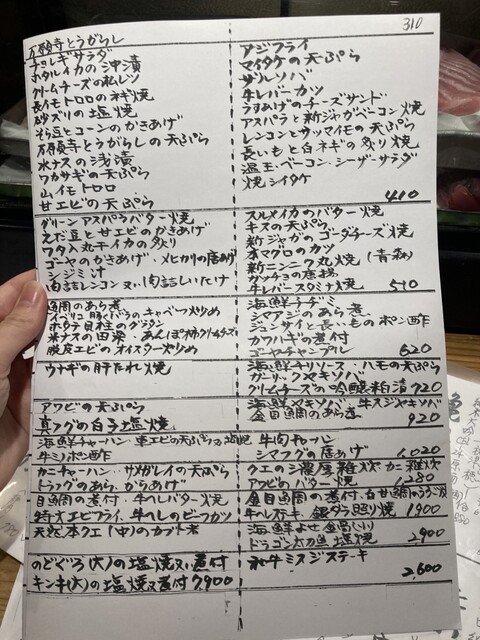 310
万願寺とうがらし
チョレギサラダ
ホタルイカの沖漬
クリームチーズの
長イモトロロのネギ焼
砂ズリの塩焼
そら豆とコーンのかきあげ
万願寺とうがらしの天ぷら
水ナスの浅漬
ワカサギの天ぷら
山イモトロロ
甘エビの天ぷら
アジフライ
マイタケの天ぷら
ザルソバ
牛レバーカツ
うすあげのチーズサンド
アスパラと新ジャガベーコン焼
レンコンとサツマイモの天ぷら
長いもと白ネギの炙り焼
温玉・ベーコン・シーザーサラダ
焼シイタケ
410
グリーンアスパラバター焼
えだ豆と甘エビのかきあげ
ワタ入丸干イカの炙り
ゴーヤのかきあげ、メヒカリの唐あげ
シジミ汁
肉詰レンコン又ハ肉詰しいたけ
スルメイカのバター焼
キスの天ぷら
新ジャガのゴーダチーズ焼
本マグロのカツ
新ニンニク丸焼 (青森)
ガッチョの唐揚
牛レバースタミナ焼
510
魚周のあら煮
イベリコ豚バラのキャベツ炒め
ホタテ貝柱のグラタン
米ナスの田楽、あんぽ柿クリームチーズ
脱皮エビのオイスター炒め
海鮮チヂミ
シマアジのあら煮
ジュンサイと長いものポン酢
カワハギの煮付
ゴーヤチャンプル
620
ウナギの肝たれ焼
海鮮チリソース、ハモの天ぷら
ガーリックヤキソバ
クリームチーズの吟醸粕漬
720
アワビの天ぷら
真フグの白子塩焼
海鮮ヤキソバ、牛スジヤキソバ
金目鯛のあら煮
920
海鮮チャーハン 車エビの天ぷら又ハ塩焼
牛ミノポン酢
牛肉チャーハン
シマフグの唐あげ
1,020
カニチャーハン サメガレイの天ぷら
トラフグのあらからあげ
クエの濃厚雑炊 カニ雑炊
アワビのバター焼
1,280
目魚周の煮付、牛ヘレバター焼
特大エビフライ、牛ヘレのビーフカツ
金目魚周の煮付、白甘鯛のうろこ
牛ヘレステーキ、銀ダラ照り焼
1900
天然本クエ(中)のカブト煮
海鮮よせ
ドラゴン太刀魚塩焼
2,900
のどぐろ(大)の塩焼又ハ煮付
キンキ(大)の塩焼又ハ煮付 7,900
和牛ミスジステーキ
2,600